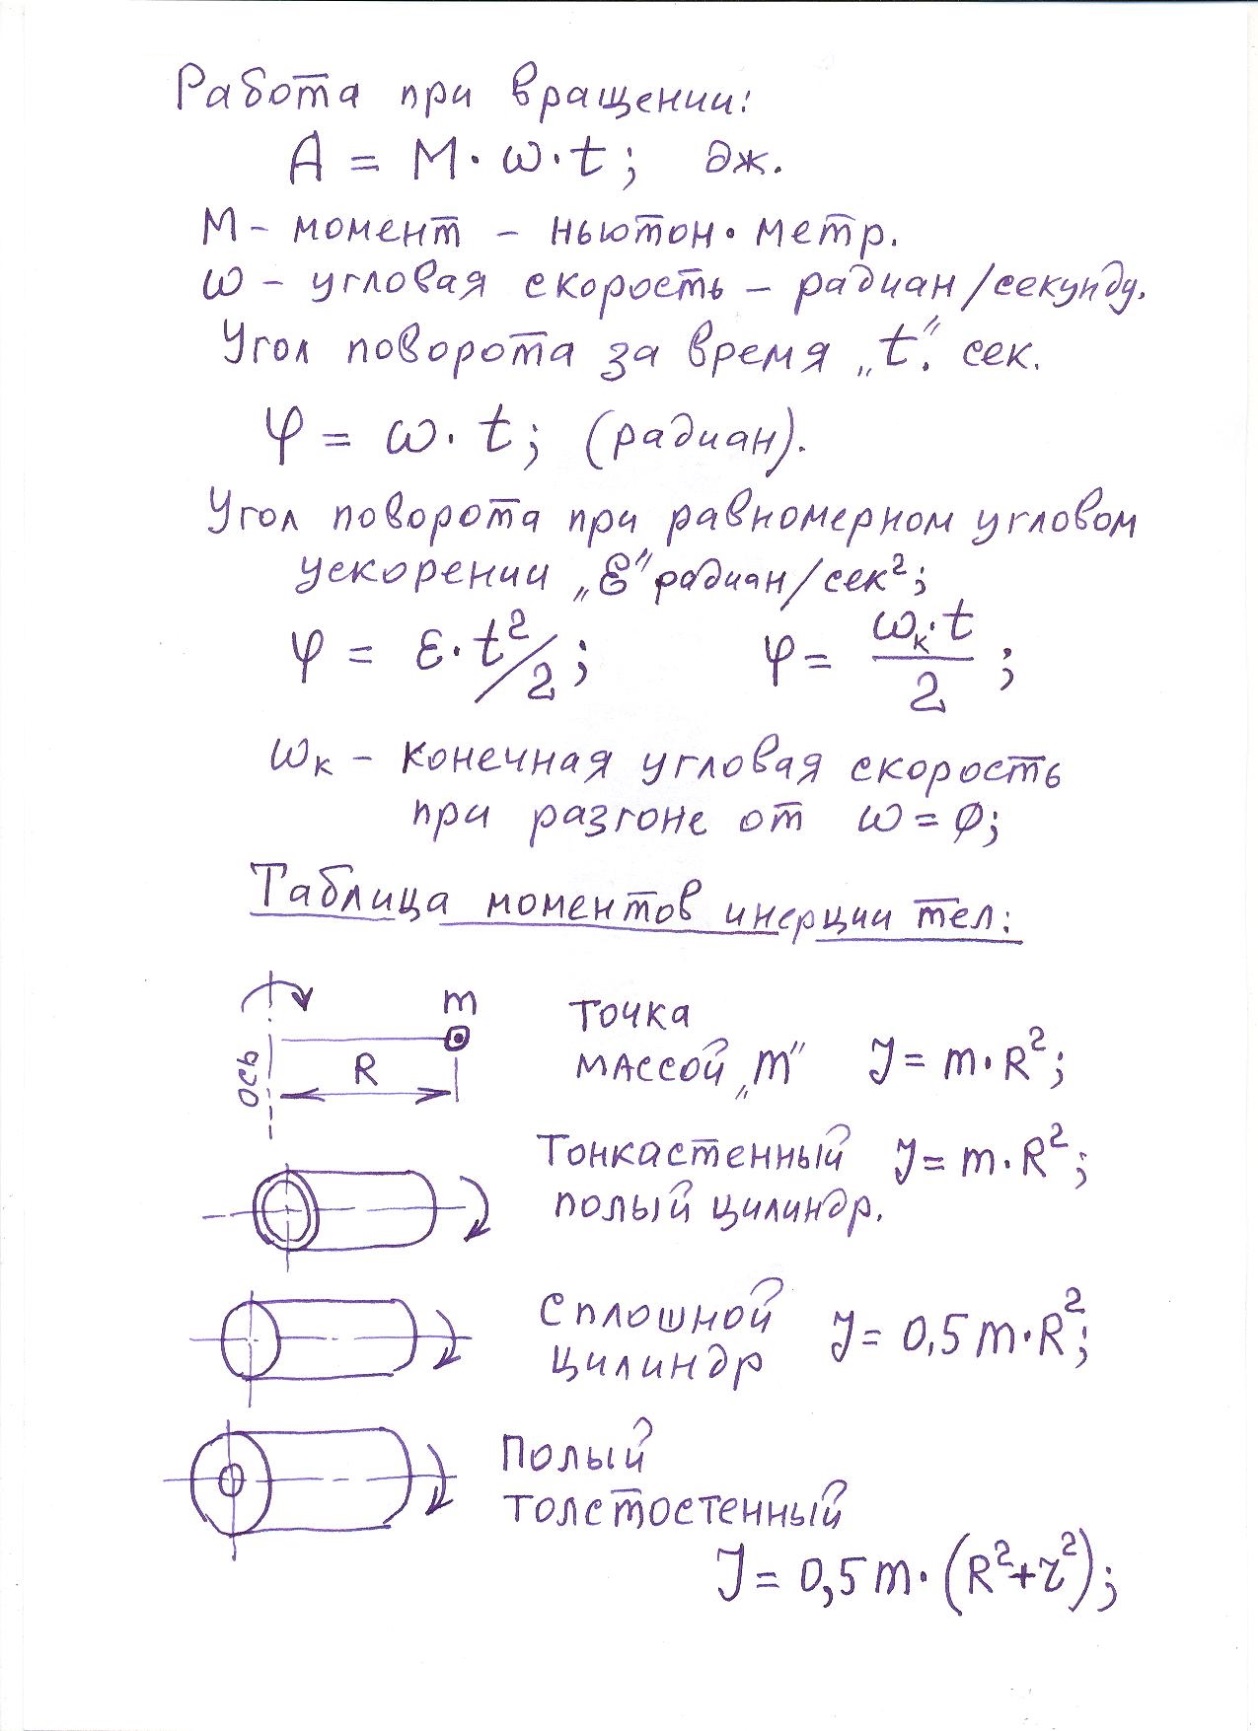 Работа при вращении:
A = M · ω · t ; дж.
М – момент – ньютон · метр.
ω – угловая скорость – радиан/секунду.
Угол поворота за время „t". сек.
φ = ω · t ; (радиан).
Угол поворота при равномерном угловом
ускорении „ε" радиан/сек²;
φ = ε · t²/2 ; φ = ωк · t / 2 ;
ωк – конечная угловая скорость
при разгоне от ω = 0;
Таблица моментов инерции тел:
ось
m
R
Точка
массой „m" J = m · R²;
Тонкастенный J = m · R²;
полый цилиндр.
Сплошной J = 0,5 m · R²;
цилиндр
Полый
толстостенный
J = 0,5 m · (R² + r²);